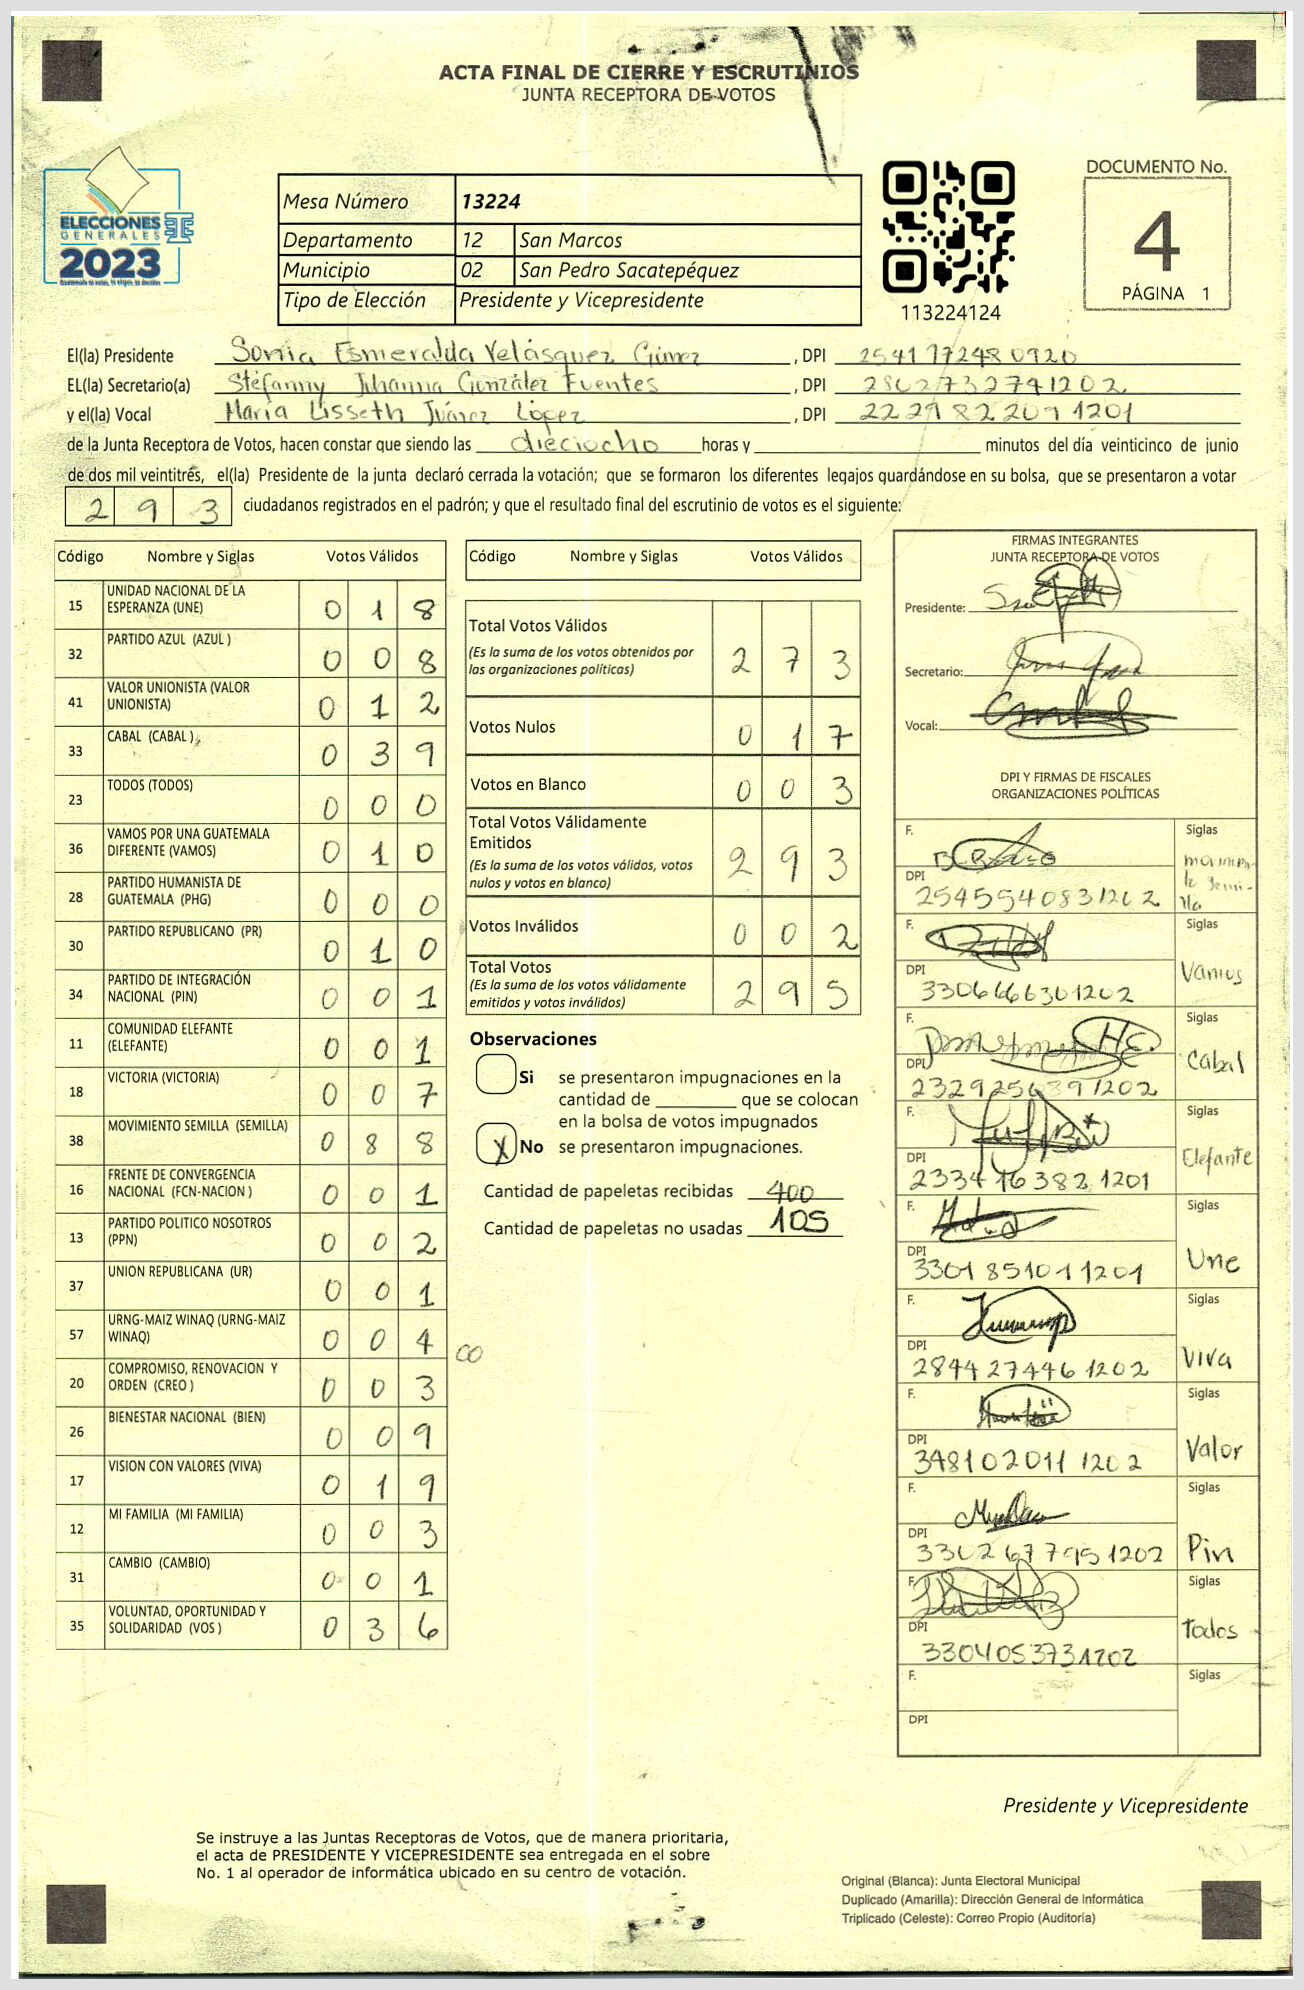 ACTA FINAL DE CIERRE Y ESCRUTINIOS
JUNTA RECEPTORA DE VOTOS
ELECCIONES
GENERALES
2023
Mesa Número 13224
Departamento 12 San Marcos
Municipio 02 San Pedro Sacatepéquez
Tipo de Elección Presidente y Vicepresidente
113224124
DOCUMENTO No.
4
PÁGINA 1
El(la) Presidente Sonia Esmeralda Velásquez Gómez , DPI 2541772480920
EL(la) Secretario(a) Stefanny Johanna González Fuentes , DPI 2802732741202
y el(la) Vocal María Lisseth Juárez López , DPI 2229822091201
de la Junta Receptora de Votos, hacen constar que siendo las dieciocho horas y minutos del día veinticinco de junio
de dos mil veintitrés, el(la) Presidente de la junta declaró cerrada la votación; que se formaron los diferentes legajos guardándose en su bolsa, que se presentaron a votar
293 ciudadanos registrados en el padrón; y que el resultado final del escrutinio de votos es el siguiente:
Código Nombre y Siglas Votos Válidos
15 UNIDAD NACIONAL DE LA ESPERANZA (UNE) 0 1 8
32 PARTIDO AZUL (AZUL ) 0 0 8
41 VALOR UNIONISTA (VALOR UNIONISTA) 0 1 2
33 CABAL (CABAL ) 0 3 9
23 TODOS (TODOS) 0 0 0
36 VAMOS POR UNA GUATEMALA DIFERENTE (VAMOS) 0 1 0
28 PARTIDO HUMANISTA DE GUATEMALA (PHG) 0 0 0
30 PARTIDO REPUBLICANO (PR) 0 1 0
34 PARTIDO DE INTEGRACIÓN NACIONAL (PIN) 0 0 1
11 COMUNIDAD ELEFANTE (ELEFANTE) 0 0 1
18 VICTORIA (VICTORIA) 0 0 7
38 MOVIMIENTO SEMILLA (SEMILLA) 0 8 8
16 FRENTE DE CONVERGENCIA NACIONAL (FCN-NACION ) 0 0 1
13 PARTIDO POLITICO NOSOTROS (PPN) 0 0 2
37 UNION REPUBLICANA (UR) 0 0 1
57 URNG-MAIZ WINAQ (URNG-MAIZ WINAQ) 0 0 4
20 COMPROMISO, RENOVACION Y ORDEN (CREO ) 0 0 3
26 BIENESTAR NACIONAL (BIEN) 0 0 9
17 VISION CON VALORES (VIVA) 0 1 9
12 MI FAMILIA (MI FAMILIA) 0 0 3
31 CAMBIO (CAMBIO) 0 0 1
35 VOLUNTAD, OPORTUNIDAD Y SOLIDARIDAD (VOS ) 0 3 6
Código Nombre y Siglas Votos Válidos
Total Votos Válidos
(Es la suma de los votos obtenidos por
las organizaciones políticas) 2 7 3
Votos Nulos 0 1 7
Votos en Blanco 0 0 3
Total Votos Válidamente
Emitidos
(Es la suma de los votos válidos, votos
nulos y votos en blanco) 2 9 3
Votos Inválidos 0 0 2
Total Votos
(Es la suma de los votos válidamente
emitidos y votos inválidos) 2 9 5
Observaciones
Si se presentaron impugnaciones en la
cantidad de que se colocan
en la bolsa de votos impugnados
X No se presentaron impugnaciones.
Cantidad de papeletas recibidas 400
Cantidad de papeletas no usadas 105
FIRMAS INTEGRANTES
JUNTA RECEPTORA DE VOTOS
Presidente:
Secretario:
Vocal:
DPI Y FIRMAS DE FISCALES
ORGANIZACIONES POLÍTICAS
F. Siglas
DPI 2545540831202
F. Siglas
DPI 3306666301202 Vamos
F. Siglas
DPI Cabal
F. Siglas
DPI 2334163821201 Elefante
F. Siglas
DPI 3301851011201 Une
F. Siglas
DPI 2844274461202 Viva
F. Siglas
DPI 3481020111202 Valor
F. Siglas
DPI 3302677951202 Pin
F. Siglas
DPI 3304053731202 todos
F. Siglas
DPI
Presidente y Vicepresidente
Se instruye a las Juntas Receptoras de Votos, que de manera prioritaria,
el acta de PRESIDENTE Y VICEPRESIDENTE sea entregada en el sobre
No. 1 al operador de informática ubicado en su centro de votación.
Original (Blanca): Junta Electoral Municipal
Duplicado (Amarilla): Dirección General de Informática
Triplicado (Celeste): Correo Propio (Auditoría)